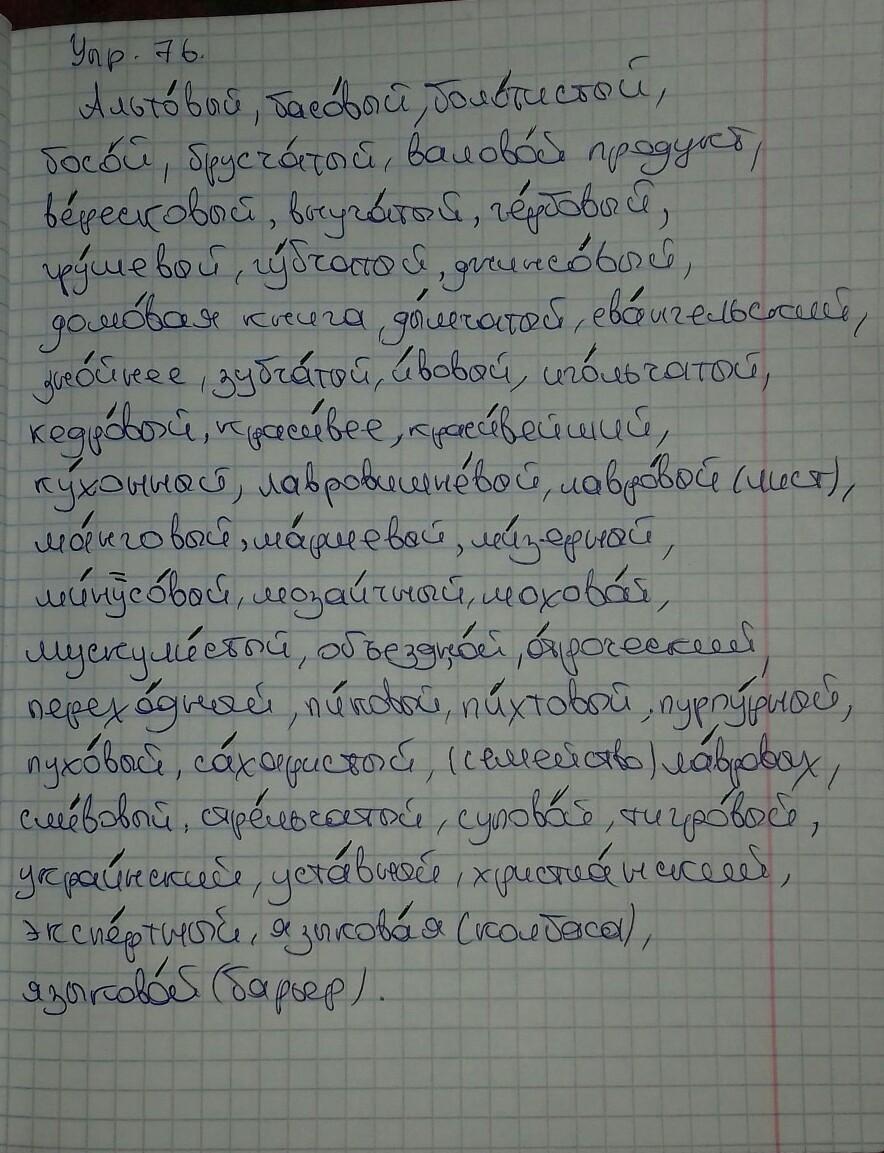 Упр. 76.
Альто́вый, басо́вый, боло́тистый,
босо́й, бруста́тый, валово́й продукт,
ве́ресковый, внуча́тый, ге́рбовый,
гру́шевый, гу́бчатый, джинсо́вый,
домо́вая книга, ды́мчатый, ева́нгельский,
зно́йнее, зубча́тый, и́вовый, иго́льчатый,
кедро́вый, краси́вее, краси́вейший,
ку́хонный, лавровишнёвый, лавро́вый (лист),
ма́нговый, ма́ршевый, ми́зерный,
ми́ну́со́вый, мозаи́чный, мохово́й,
мускули́стый, объездно́й, о́троческий,
перехо́дный, пи́ковый, пи́хтовый, пурпу́рный,
пухо́вый, са́харистый, (семейство) ла́вровых,
сли́вовый, стре́льчатый, супово́й, тигро́вый,
украи́нский, уста́вный, христиа́нский,
экспе́ртный, языкова́я (колбаса),
языково́й (барьер).